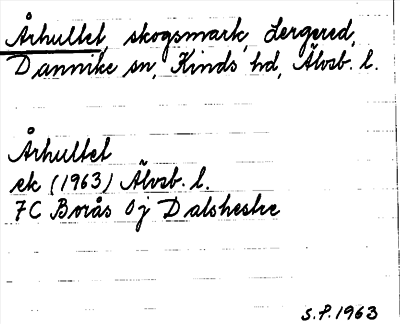 Århultet, skogsmark, Lergered,
Dannike sn, Kinds hd, Älvsb. l.
Århultet
ek (1963) Älvsb. l.
7C Borås 0j Dalshestra
S.P. 1963